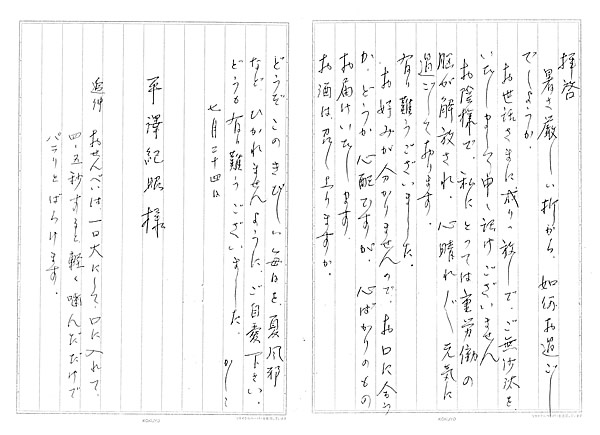 拝啓
暑さ厳しい折から、如何お過ごし
でしょうか。
お世話さまに成りっ放しで、ご無沙汰を
いたしまして申し訳けございません
お陰様で、私にとっては重労働の
脳が解放され、心晴れ〴〵元気に
過ごしております。
有り難うございました。
お好みが分かりませんので、お口に合う
か、どうか心配ですが、心ばかりのもの
お届けいたします。
お酒は、召し上りますか。
どうぞこのきびしい毎日を、夏風邪
など ひかれませんように、ご自愛下さい。
どうも有り難うございました。 かしこ
七月二十四日
平澤紀昭様
追伸 おせんべいは、一口大にして、口に入れて、
四・五秒すると軽く噛んだだけで
パラリとばらけます。
KOKUYO
KOKUYO